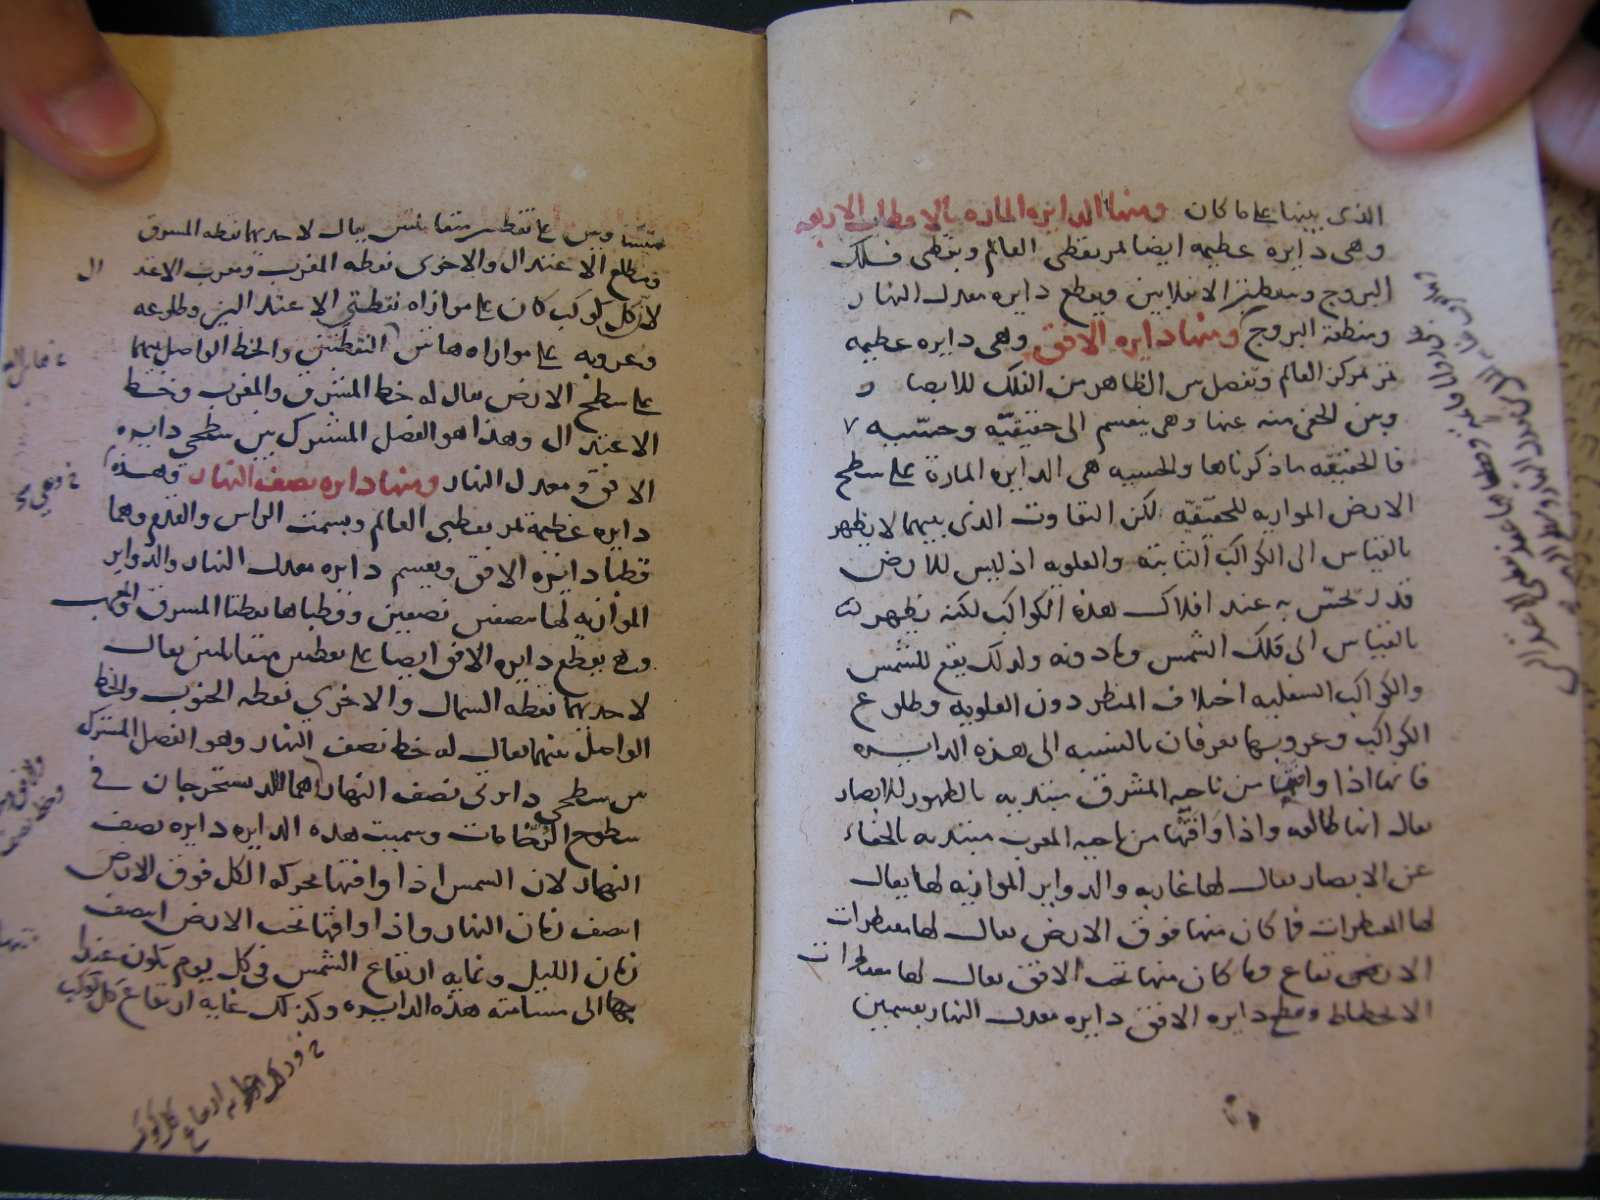 الذى بينها على ما كان ومنها الدايره الماره بالاقطاب الاربعه
وهى دايره عظيمه ايضا تمر بقطبى العالم وبقطبى فلك
البروج وبنقطتى الانقلابين ويقطع دايره معدل النهار
ومنطقة البروج ومنها دايره الافق وهى دايره عظيمه
تمر بمركز العالم وتفصل بين الظاهر من الفلك للابصار
وبين الخفى منه عنها وهى ينقسم الى حقيقيّه وحسّيه
فالحقيقيه ما ذكرناها والحسيه هى الدايره المارة على سطح
الارض الموازيه للحقيقيّه لكن التفاوت الذى بينهما لا يظهر
بالقياس الى الكواكب الثابته والعلويه اذ ليس للارض
قدر يحسّ به عند افلاك هذه الكواكب لكنه يظهر
بالقياس الى فلك الشمس وما دونه ولذلك يقع للشمس
والكواكب السفليه اختلاف المنظر دون العلويه وطلوع
الكواكب وغروبها يعرفان بالنسبه الى هذه الدايره
فانها اذا وافتها من ناحيه المشرق مبتديه بالظهور للابصار
يقال انها طالعه واذا وافتها من ناحيه المغرب مبتديه بالخفاء
عن الابصار يقال لها غاربه والدواير الموازيه لها يقال
لها المقنطرات فما كان منها فوق الارض يقال لها مقنطرات
الارتفاع وما كان منها تحت الافق يقال لها مقنطرات
الانحطاط ويقطع دايره الافق دايره معدل النهار بقسمين
على نقطتين متقابلتين يقال لاحديهما نقطه المشرق
ومطلع الاعتدال والاخرى نقطه المغرب ومغرب الاعتد
لان كل كوكب كان على موازاه نقطتى الاعتدالين وطلوعه
وغروبه على موازاه هاتين النقطتين والخط الواصل بينهما
على سطح الارض يقال له خط المشرق والمغرب وخط
الاعتدال وهذا هو الفصل المشترك بين سطحى دايره
الافق ومعدل النهار ومنها دايره نصف النهار وهذه
دايره عظيمة تمر بقطبى العالم وبسمت الراس والقدم وهما
قطبا دايره الافق ويقسم دايره معدل النهار والدواير
الموازيه لها بنصفين نصفين وقطباها نقطتا المشرق والمغرب
وهى يقطع دايره الافق ايضا على نقطتين متقابلتين يقال
لاحديهما نقطه الشمال والاخرى نقطه الجنوب والخط
الواصل بينهما يقال له خط نصف النهار وهو الفصل المشترك
بين سطحى دايرتى نصف النهار يستخرجان فى
سطوح الرّخامات وسميت هذه الدايره دايره نصف
النهار لان الشمس اذا وافتها بحركه الكل فوق الارض
انتصف زمان النهار واذا وافتها تحت الارض انتصف
زمان الليل وغايه ارتفاع الشمس فى كل يوم يكون عند
الى مسامته هذه الدايره وكذلك غايه ارتفاع كل كوكب